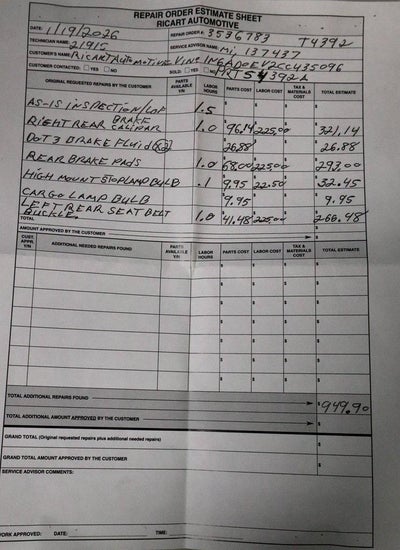 REPAIR ORDER ESTIMATE SHEET
RICART AUTOMOTIVE
DATE: 1/19/2026 REPAIR ORDER #: 3536783 T4392
TECHNICIAN NAME: 21915 SERVICE ADVISOR NAME: Mi, 137437
CUSTOMER'S NAME: RICART AUTOMOTIVE VIN
CUSTOMER CONTACTED: YES NO SOLD: YES NO PRT54392A
ORIGINAL REQUESTED REPAIRS BY THE CUSTOMER PARTS AVAILABLE Y/N LABOR HOURS PARTS COST LABOR COST TAX & MATERIALS COST TOTAL ESTIMATE
AS-IS INSPECTION/LOF 1.5
RIGHT REAR BRAKE CALIPAR 1.0 96.14 225.00 321.14
DOT 3 BRAKE FLUID (x2) 26.88 26.88
REAR BRAKE PADS 1.0 68.00 225.00 293.00
HIGH MOUNT STOPLAMP BULB .1 9.95 22.50 32.45
CARGO LAMP BULB 9.95 9.95
LEFT REAR SEAT BELT BUCKLE 1.0 41.48 225.00 266.48
TOTAL
AMOUNT APPROVED BY THE CUSTOMER
CUST. APPR. Y/N ADDITIONAL NEEDED REPAIRS FOUND PARTS AVAILABLE Y/N LABOR HOURS PARTS COST LABOR COST TAX & MATERIALS COST TOTAL ESTIMATE
TOTAL ADDITIONAL REPAIRS FOUND $949.90
TOTAL ADDITIONAL AMOUNT APPROVED BY THE CUSTOMER
GRAND TOTAL (Original requested repairs plus additional needed repairs)
GRAND TOTAL AMOUNT APPROVED BY THE CUSTOMER
SERVICE ADVISOR COMMENTS:
WORK APPROVED: DATE: TIME: